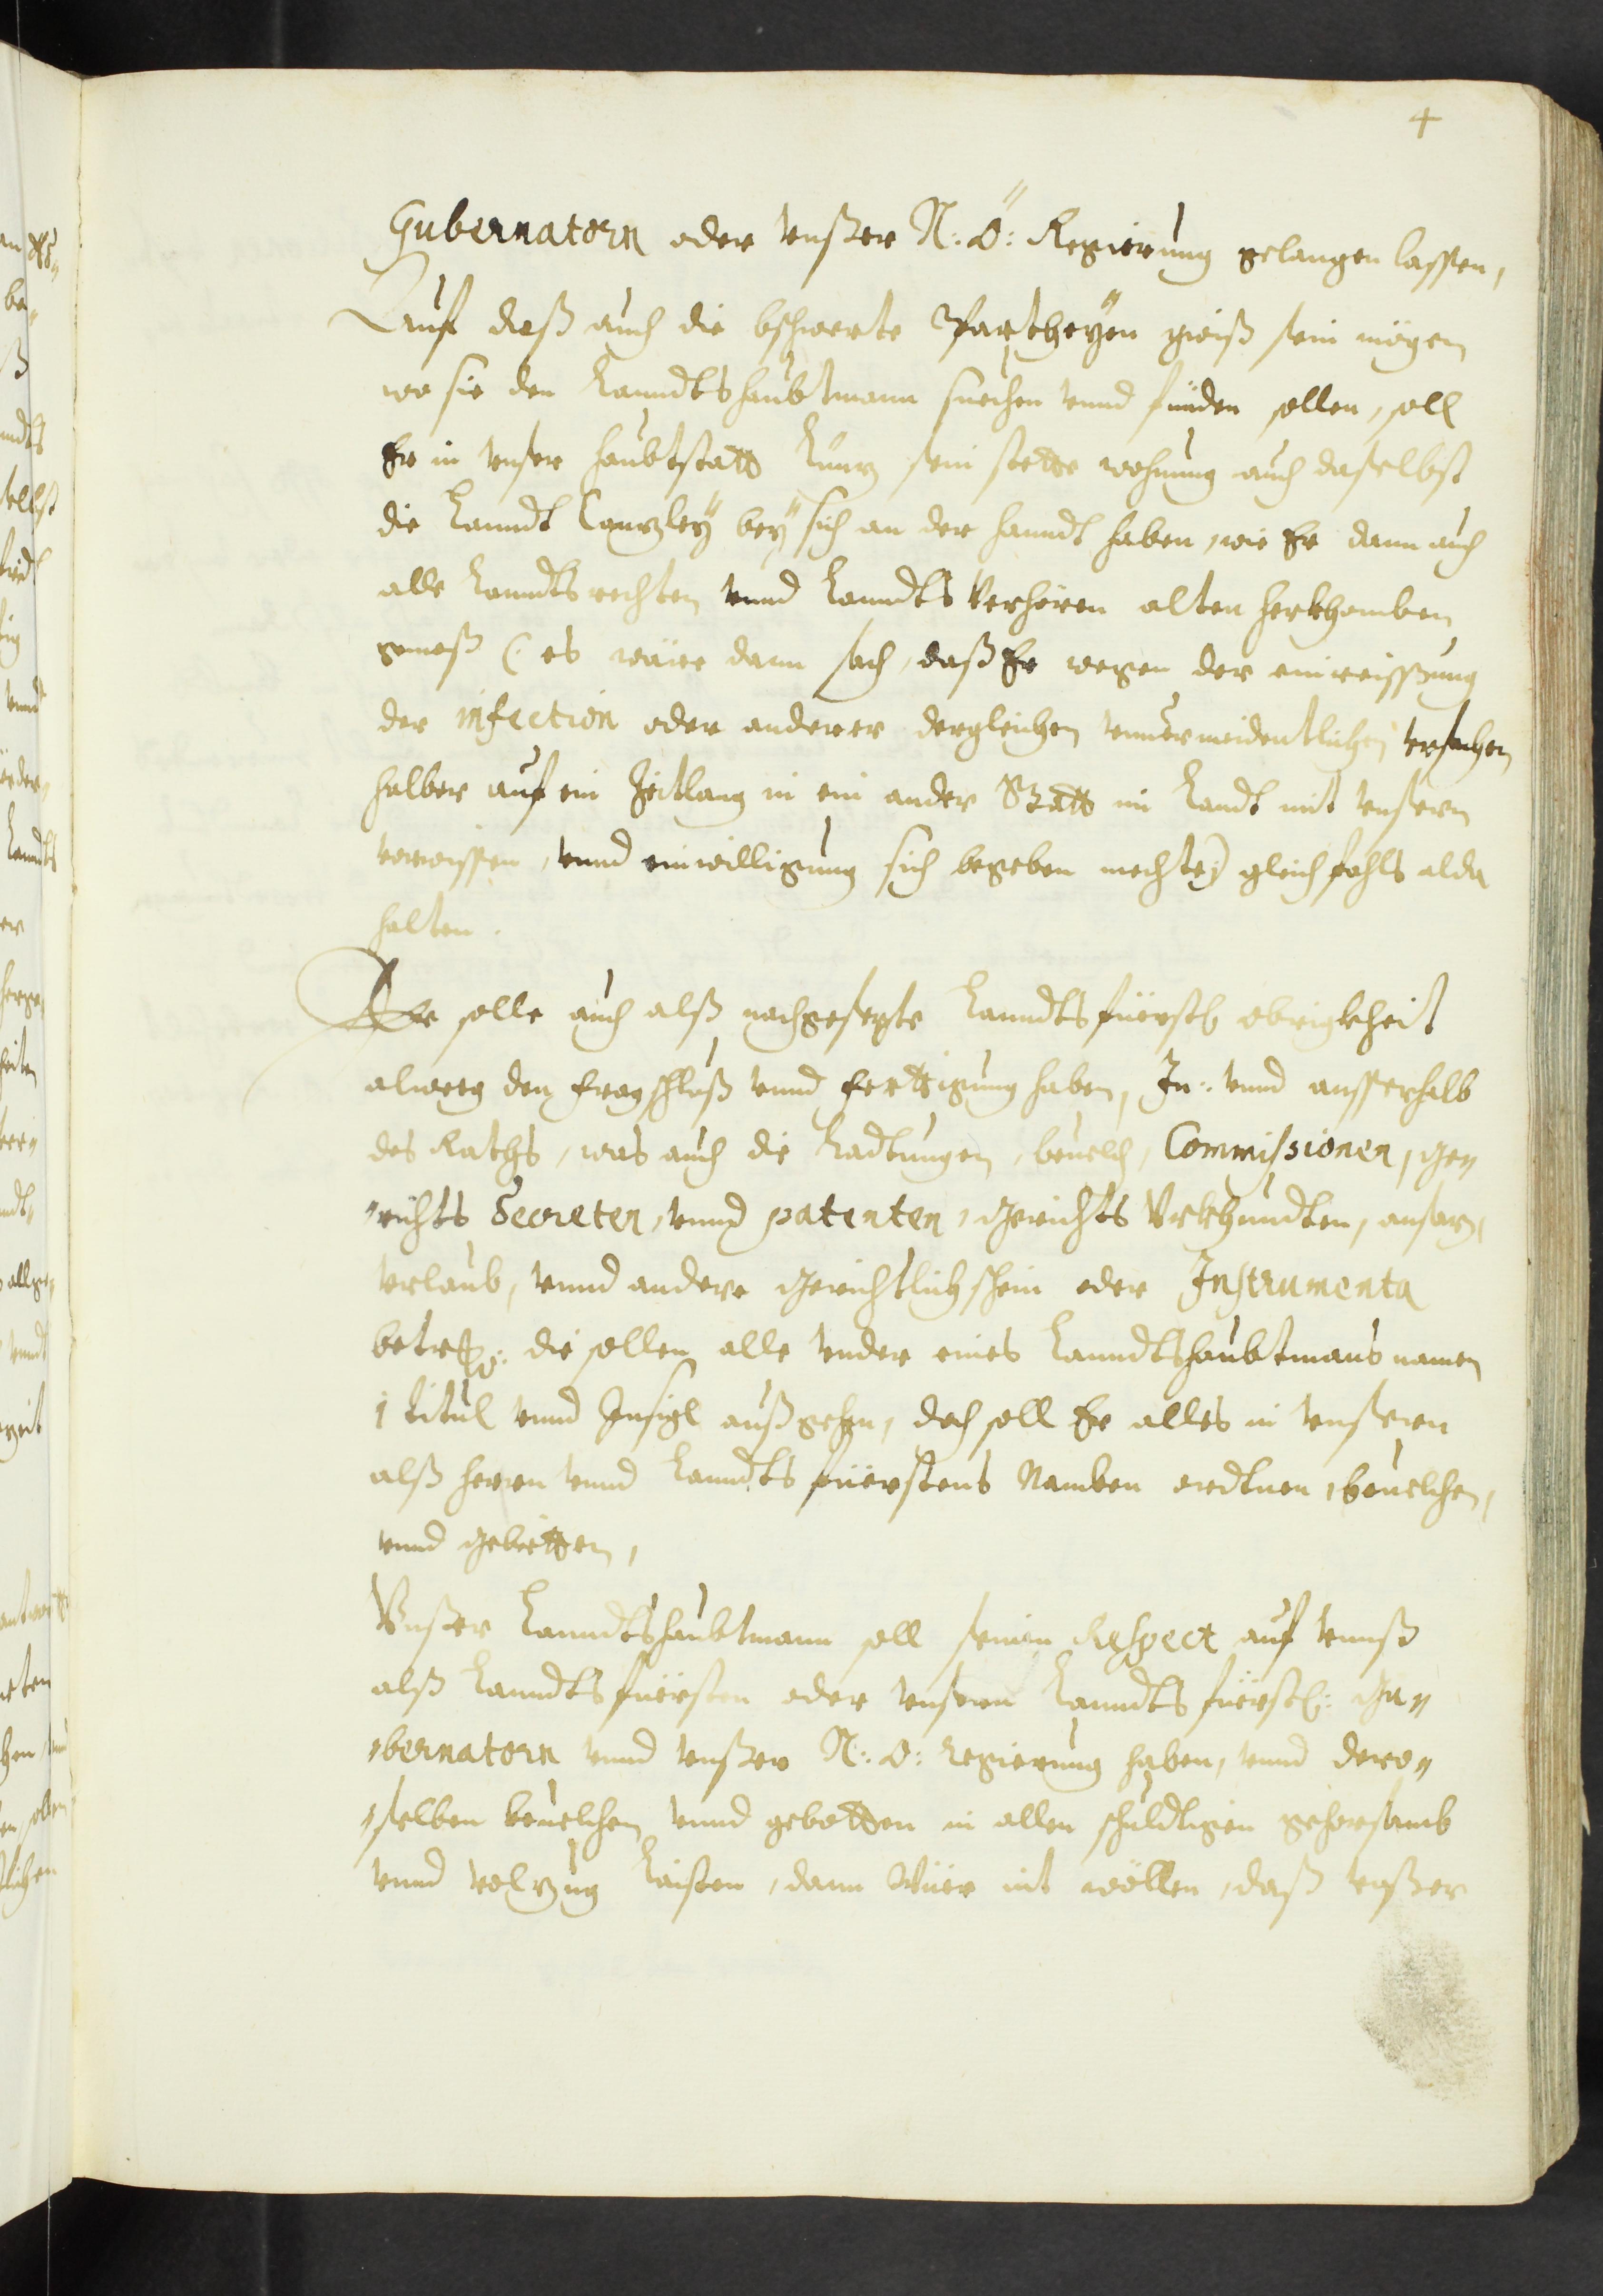 4
Gubernatorn oder vnßer N: Ö: Regierung gelangen lassen,
Auf daß auch die bschwerte Partheÿen gwiß sein mögen
wo sie den Lanndtshaubtmann suechen vnnd fünden sollen, soll
Er in vnser haubtstatt Lünz sein stette wohnung auch daselbst
die Lanndt Canzleÿ beÿ sich an der hanndt haben, wie Er dann auch
alle Lanndtsrechten vnnd Lanndts Verhören alten herkhomben
gemeß (: es wäre dann sach, daß Er wegen der einreissung
der infection oder anderer dergleichen vnuermeidentlichen vrsachen
halber auf ein Zeitlang in ein ander Statt im Landt mit vnserm
vorwissen, vnnd einwilligung sich begeben mechte:) gleichfahls alda
halten.
Er solle auch alß nachgesezte Lanndtsfüerstl obrigkheit
alweeg den fragschluß vnnd ferttigung haben, In: vnnd ausserhalb
des Raths, was auch die Ladtungen, beuelch, Commissionen, ge„
„richts Secreten, vnnd patenten, Gerichts Vrkhundten, ansaz,
verlaub, vnnd andere gerichtlich schein oder Instrumenta
betrifft: die sollen alle vnder eines Lanndtshaubtmans namen
, titul vnnd Insigl außgehen, doch soll Er alles in vnserm
alß herrn vnnd Lanndtsfüerstens Namben ordtnen, beuelchen,
vnnd gebietten,
Vnßer Lanndtshaubtmann soll seinen Respect auf vnnß
alß Lanndtsfüersten oder vnsern Lanndtsfüerstl: Gu„
„bernatorn vnnd vnßer N: Ö: Regierung haben, vnnd dero„
„selben beuelchen vnnd gebotten in allen schuldtigen gehorsamb
vnnd volzug laisten, dann Wüer nit wöllen, daß vnßer